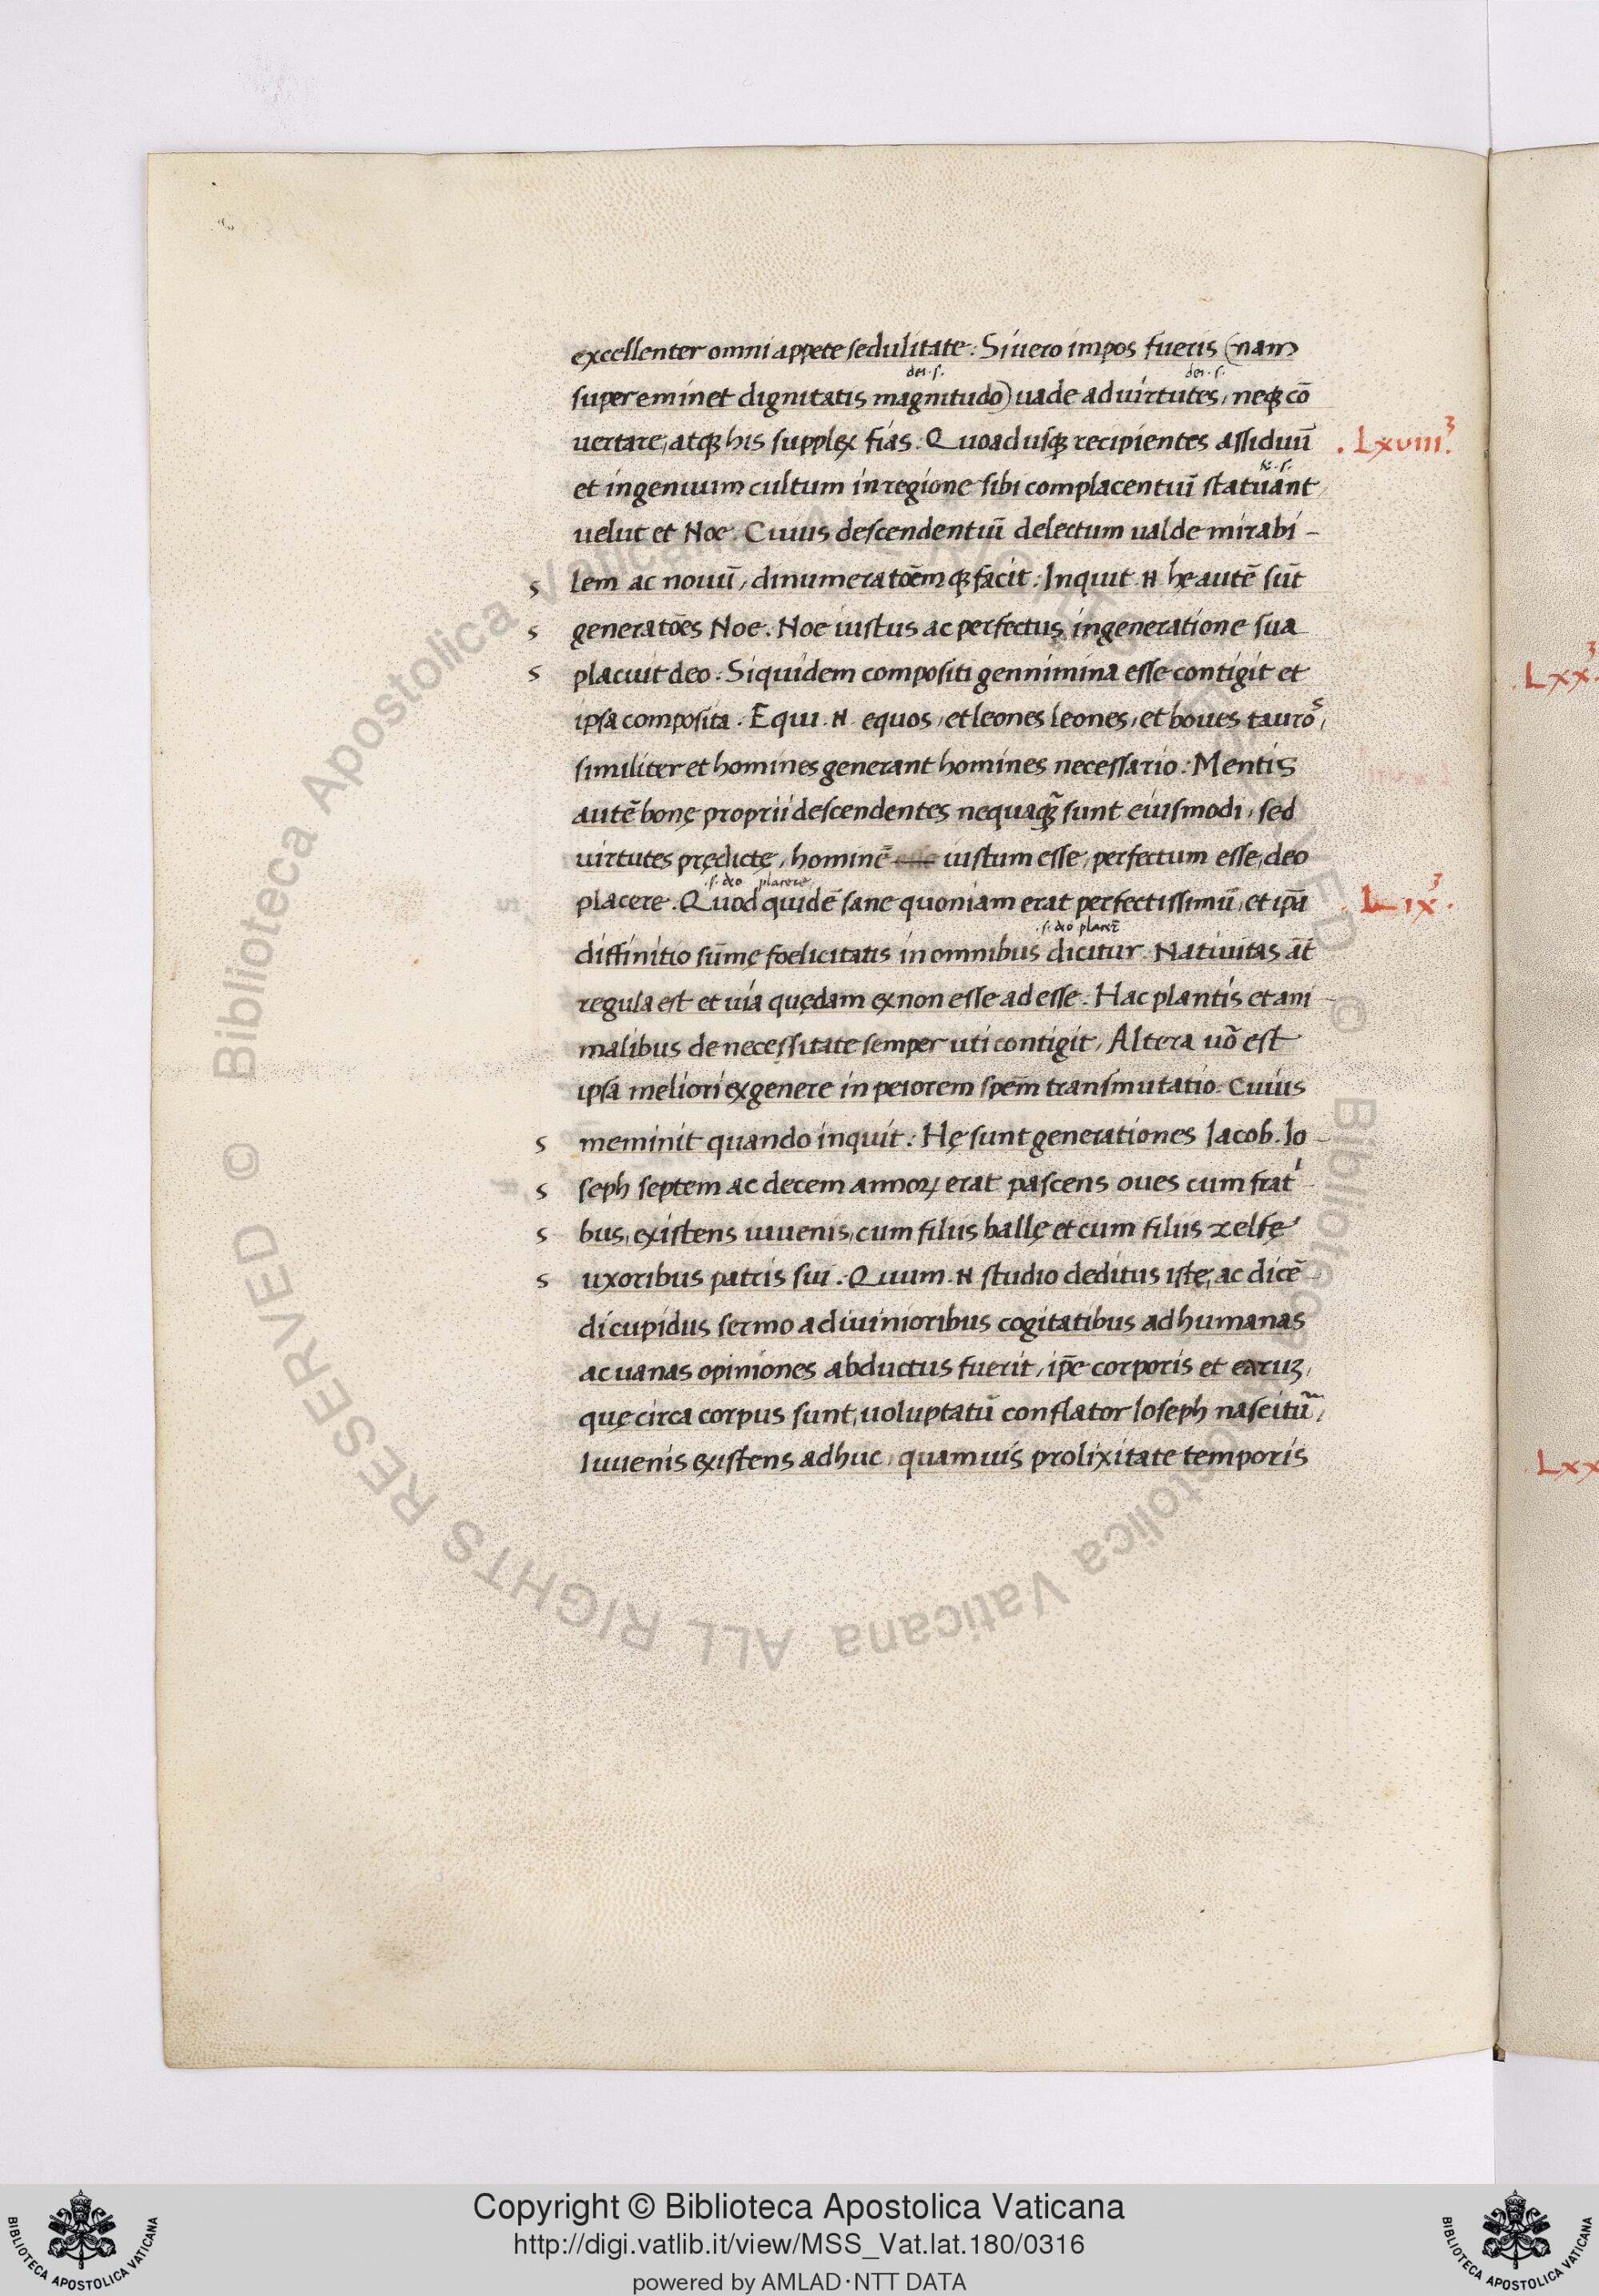 excellenter omni appete sedulitate: Siuero impos fueris (nam
dei .s. dei .s.
supereminet dignitatis magnitudo) uade ad uirtutes, neqꝫ cō
uertare, atqꝫ his supplex fias. Quoadusqꝫ recipientes assiduū
.Lxviii.3
et ingenuum cultum in regione sibi complacentuı̄ statuant
uelut et Noe. Cuius descendentiū delectum ualde mirabi-
s lem ac nouū, dinumeratōemqꝫ facit: Inquit .N. hę autē sūt
s generatōes Noe. Noe iustus ac perfectus ingeneratione sua
s placuit deo: Siquidem compositi gennimina esse contigit et
Lxx.3
ipsa composita. Equi .N. equos, et leones leones, et boues tauros,
similiter et homines generant homines necessario: Mentis
autē bonę proprii descendentes nequaqꝫ̄ sunt eiusmodi, sed
uirtutes prędictę, hominē iustum esse, perfectum esse, deo
.s. deo placere
placere. Quod quidē sane quoniam erat perfectissimū, et ip̄a
Lix.3
.s. deo placer̄
diffinitio sūmę foelicitatis in omnibus dicitur. Natiuitas āt
regula est et uia quędam ex non esse ad esse. Hac plantis et ani-
malibus de necessitate semper uti contigit, Altera uō est
ipsa meliori ex genere in peiorem spēm transmutatio. Cuius
s meminit quando inquit: Hę sunt generationes Iacob. Io-
s seph septem ac decem annoꝝ erat pascens oues cum frati-
s bus, existens iuuenis, cum filiis ballę et cum filiis zelfę
s uxoribus patris sui. Quum .N. studio deditus iste, ac dicē-
di cupidus sermo a diuinioribus cogitatibus ad humanas
ac uanas opiniones abductus fuerit, ip̄e corporis et earuꝫ,
quę circa corpus sunt, uoluptatū conflator Ioseph nascitur,
Iuuenis existens adhuc, quamuis prolixitate temporis
Lxx
© Biblioteca Apostolica Vaticana ALL RIGHTS RESERVED © Biblioteca Apostolica Vaticana ALL RIGHTS RESERVED
Copyright © Biblioteca Apostolica Vaticana
http://digi.vatlib.it/view/MSS_Vat.lat.180/0316
powered by AMLAD·NTT DATA
BIBLIOTECA APOSTOLICA VATICANA
BIBLIOTECA APOSTOLICA VATICANA